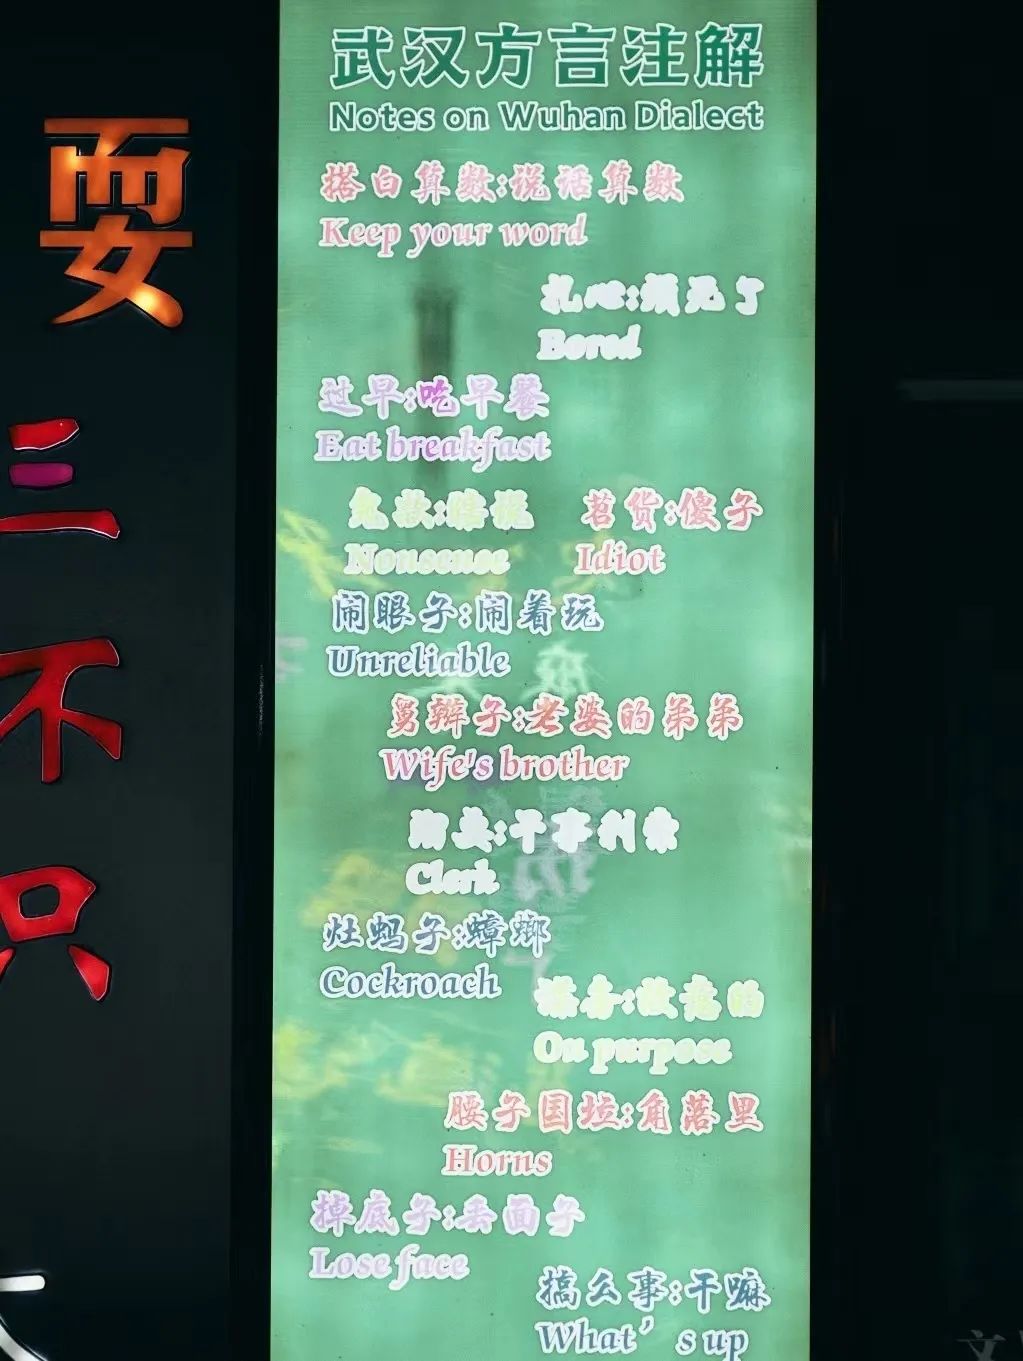 武汉方言注解
Notes on Wuhan Dialect
搭白算数:说话算数
Keep your word
扎心:烦死了
Bored
过早:吃早餐
Eat breakfast
:瞎说
Nonsense
苕货:傻子
Idiot
闹眼子:闹着玩
Unreliable
舅辫子:老婆的弟弟
Wife's brother
:干事利索
Clerk
灶蚂子:蟑螂
Cockroach
:故意的
On purpose
腰子国垃:角落里
Horns
掉底子:丢面子
Lose face
搞么事:干嘛
What’s up
耍
三
不
只